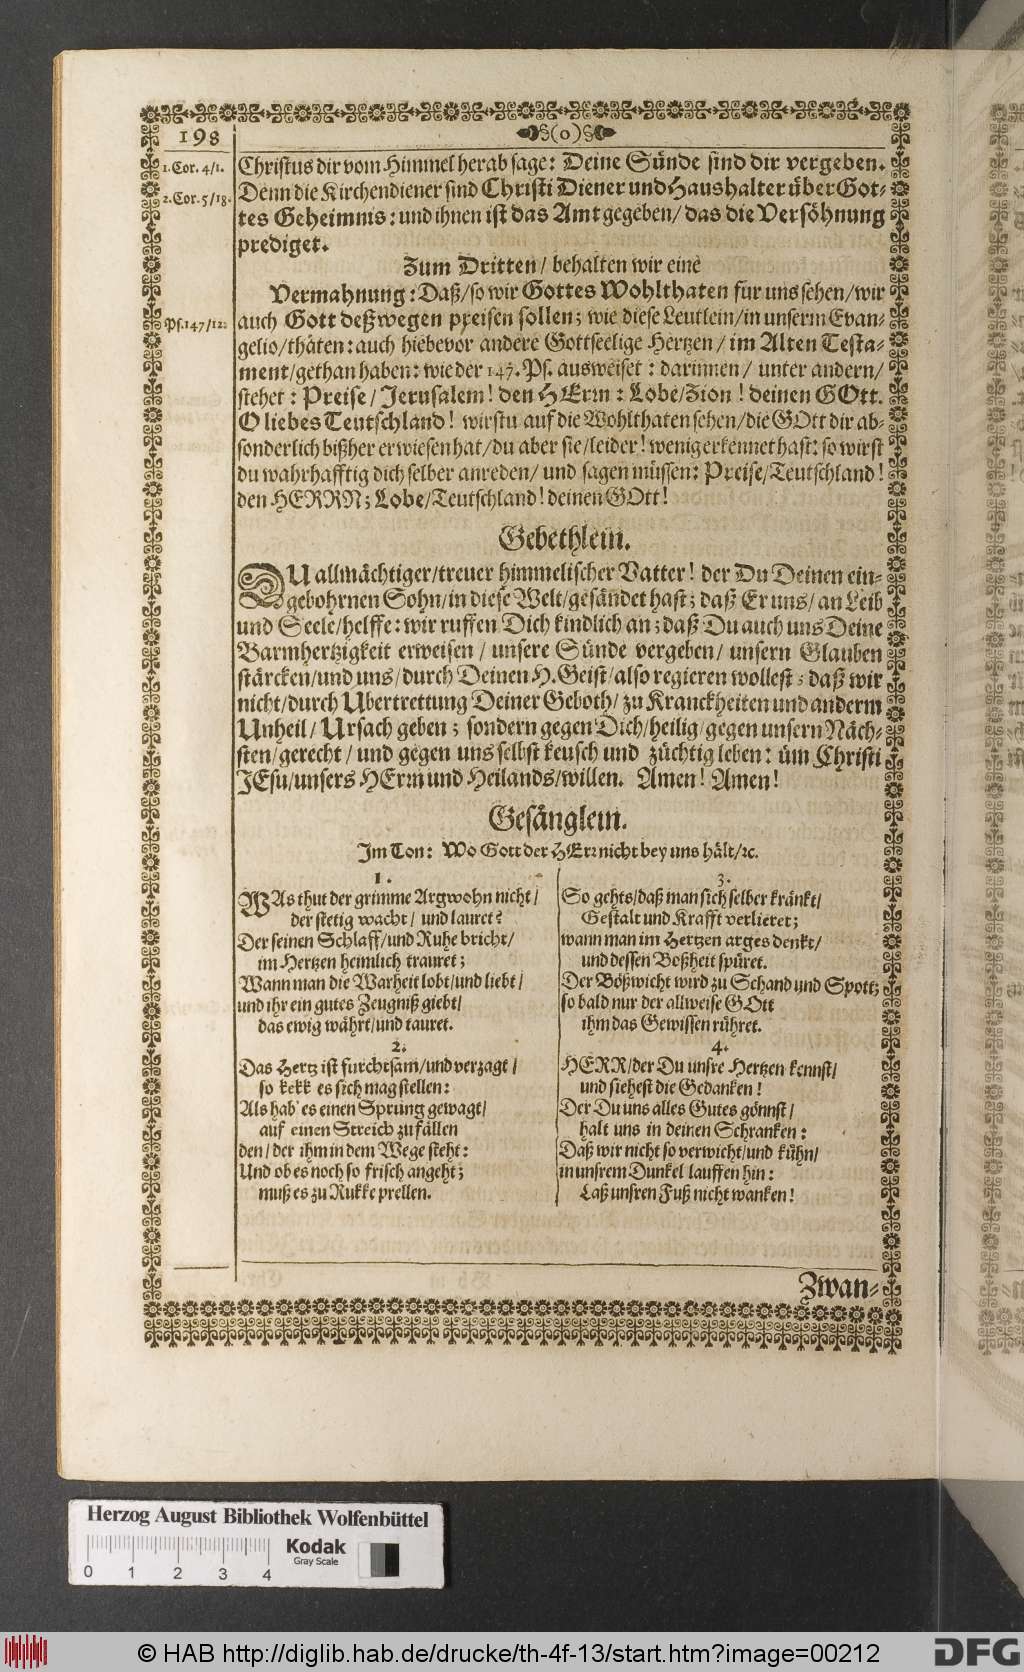 198
§(o)§
1. Cor. 4/1.
2. Cor. 5/18.
Ps. 147/12.
Christus dir vom Himmel herab sage: Deine Sünde sind dir vergeben.
Denn die Kirchendiener sind Christi Diener und Haushalter über Got-
tes Geheimnis: und ihnen ist das Amt gegeben/ das die Versöhnung
prediget.
Zum Dritten/ behalten wir eine
Vermahnung: Daß/ so wir Gottes Wohlthaten für uns sehen/ wir
auch Gott deßwegen preisen sollen; wie diese Leutlein/ in unserm Evan-
gelio/ thäten: auch hiebevor andere Gottseelige Hertzen/ im Alten Testa-
ment/ gethan haben: wie der 147. Ps. ausweiset: darinnen/ unter andern/
stehet: Preise/ Jerusalem! den HErrn: Lobe/ Zion! deinen GOtt.
O liebes Teutschland! wirstu auf die Wohlthaten sehen/ die GOtt dir ab-
sonderlich bißher erwiesen hat/ du aber sie/ leider! wenig erkennet hast: so wirst
du wahrhafftig dich selber anreden/ und sagen müssen: Preise/ Teutschland!
den HERRN; Lobe/ Teutschland! deinen GOtt!
Gebethlein.
DU allmächtiger/ treuer himmelischer Vatter! der Du Deinen ein-
gebohrnen Sohn/ in diese Welt/ gesändet hast; daß Er uns/ an Leib
und Seele/ helffe: wir ruffen Dich kindlich an; daß Du auch uns Deine
Barmhertzigkeit erweisen/ unsere Sünde vergeben/ unsern Glauben
stärcken/ und uns/ durch Deinen H. Geist/ also regieren wollest; daß wir
nicht/ durch Ubertrettung Deiner Geboth/ zu Kranckheiten und anderm
Unheil/ Ursach geben; sondern gegen Dich/ heilig/ gegen unsern Näch-
sten/ gerecht/ und gegen uns selbst keusch und züchtig leben: üm Christi
JEsu/ unsers HErrn und Heilands/ willen. Amen! Amen!
Gesänglein.
Im Ton: Wo Gott der HErr nicht bey uns hält/ ꝛc.
1.
WAs thut der grimme Argwohn nicht/
der stetig wacht/ und lauret?
Der seinen Schlaff/ und Ruhe bricht/
im Hertzen heimlich trauret;
Wann man die Warheit lobt/ und liebt/
und ihr ein gutes Zeugniß giebt/
das ewig währt/ und tauret.
2.
Das Hertz ist furchtsam/ und verzagt/
so kekk es sich mag stellen:
Als hab' es einen Sprung gewagt/
auf einen Streich zu fällen
den/ der ihm in dem Wege steht:
Und ob es noch so frisch angeht;
muß es zu Rukke prellen.
3.
So gehts/ daß man sich selber kränkt/
Gestalt und Krafft verlieret;
wann man im Hertzen arges denkt/
und dessen Boßheit spüret.
Der Bößwicht wird zu Schand und Spott;
so bald nur der allweise GOtt
ihm das Gewissen rühret.
4.
HERR/ der Du unsre Hertzen kennst/
und siehest die Gedanken!
Der Du uns alles Gutes gönnst/
halt uns in deinen Schranken:
Daß wir nicht so verwicht/ und kühn/
in unsrem Dunkel lauffen hin:
Laß unsren Fuß nicht wanken!
Zwan-
Herzog August Bibliothek Wolfenbüttel
0 1 2 3 4
Kodak
Gray Scale
© HAB http://diglib.hab.de/drucke/th-4f-13/start.htm?image=00212
DFG